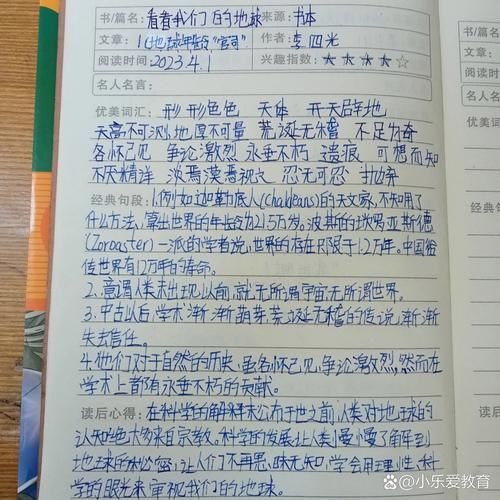 书/篇名: 看看我们的地球 来源: 书本
文章: 1《地球年龄的"官司" 作者: 李四光
阅读时间: 2023.4.1 兴趣指数: ★★★★☆
名人名言:
优美词汇: 形形色色 天体 开天辟地
天高不可测,地厚不可量 荒诞无稽 不足为奇
各怀己见 争论激烈 永垂不朽 遗痕 可想而知
不厌精详 淡焉漠焉视之 忍无可忍 抛弃
经典句段: 1.例如迦勒底人(Chaldeans)的天文家,不知用了
什么方法,算出世界的年龄为21.5万岁。波斯的琐罗亚斯德
(Zoroaster)一派的学者说,世界的存在只限于1.2万年。中国俗
传世界有12万年的寿命。
2.意谓人类未出现以前,就无所谓宇宙,无所谓世界。
3.中古以后,学术渐渐萌芽,荒诞无稽的传说,渐渐
失去信任。
4.他们对于自然的历史,虽各怀己见,争论激烈,然而在
学术上都有永垂不朽的贡献。
读后心得: 在科学的解释未公布于世之前,人类对地球的
认知绝大多来自宗教。科学的发展让人类慢慢了解到
地球的秘密,让人们不再愚昧无知,学会用理性、科
学的眼光来审视我们的地球。
书/篇
文章
阅读时
名人
优美
经典
读后
@小乐爱教育